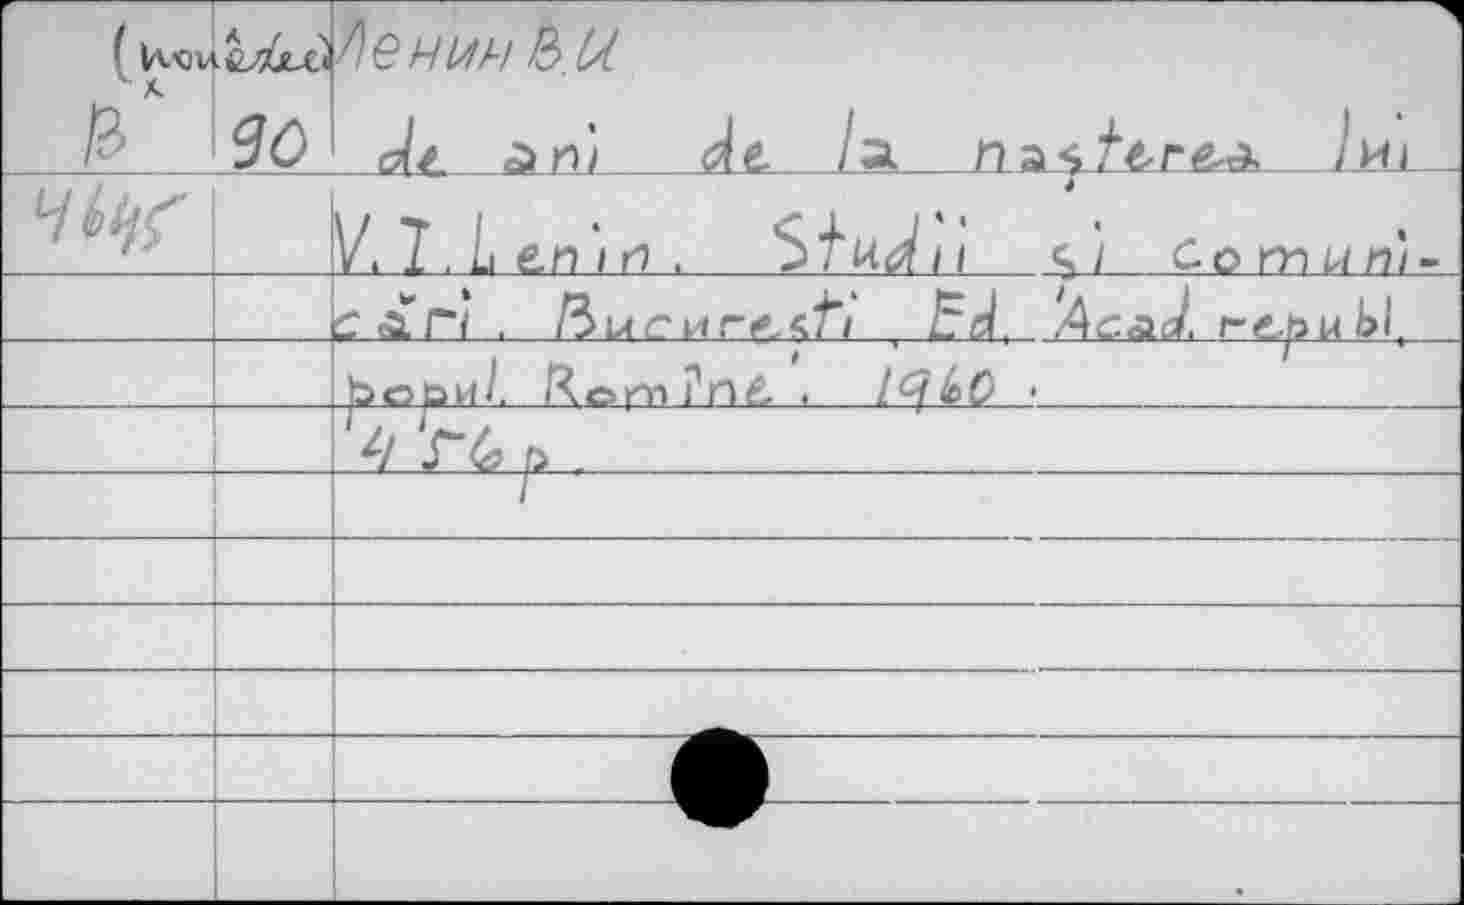 Ленин В.И
В 90 de ani de la naşterea lui
4645 V.I. Lenin. Studii şi comuni-
cări. Bucureşti, Ed. Acad. republ.
popul. Romîne. 1960.
456 p.